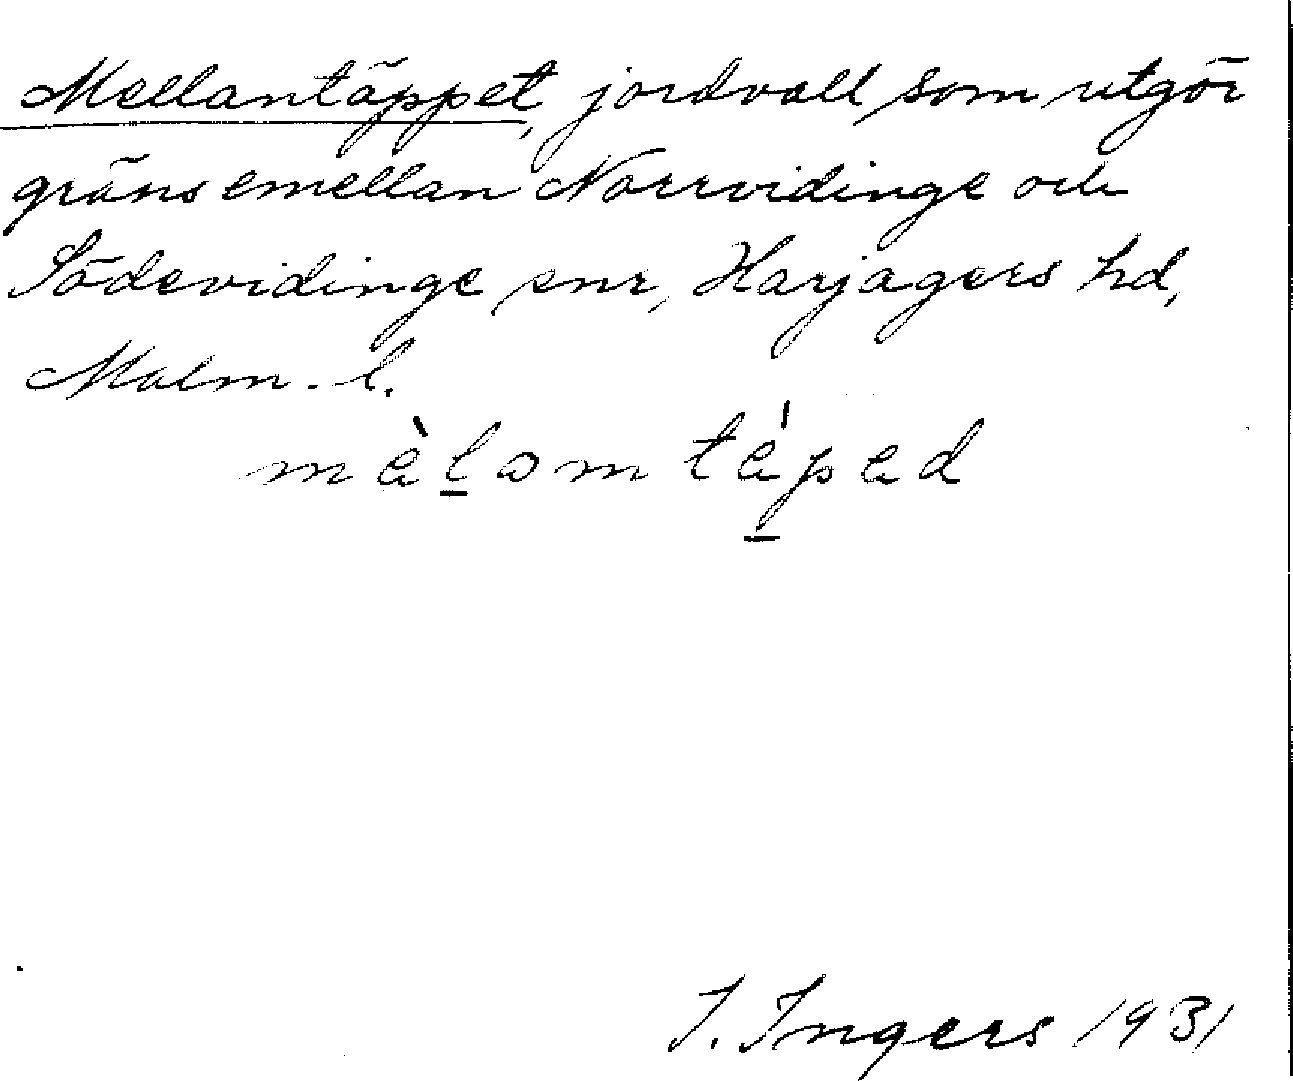 Mellantäppet, jordvall som utgör
gräns emellan Norrvidinge och
Södervidinge snr, Harjagers hd,
Malm. l.
mèlam tépad
I. Ingers 1931